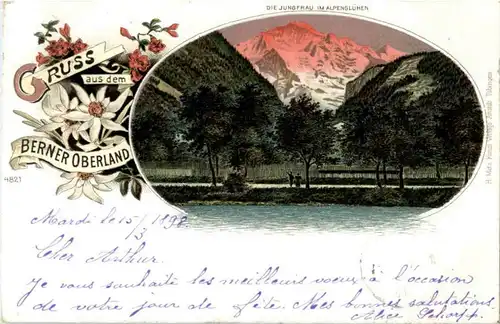 DIE JUNGFRAU IM ALPENGLÜHEN
GRUSS
aus dem
BERNER OBERLAND
4821
Mardi le 15/3 1898
Cher Arthur.
Je vous souhaite les meilleurs voeux à l'occasion
de votre jour de fête. Mes bonnes salutations
Alice